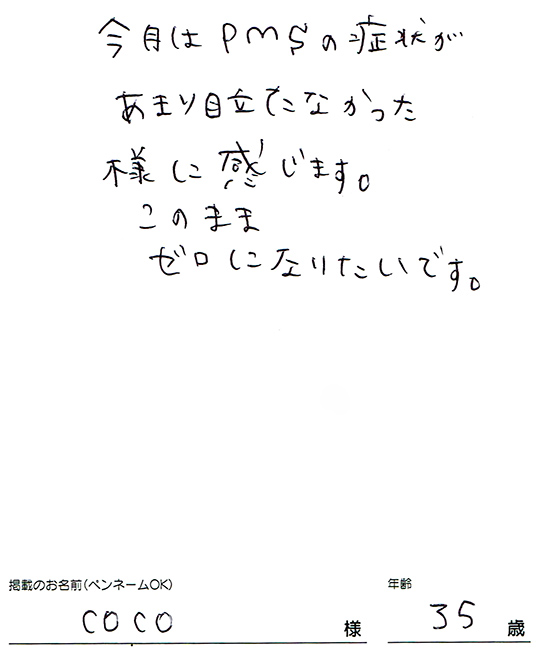 今月はPMSの症状が
あまり目立たなかった
様に感じます。
このまま
ゼロになりたいです。
掲載のお名前(ペンネームOK) 年齢
coco 様 35 歳